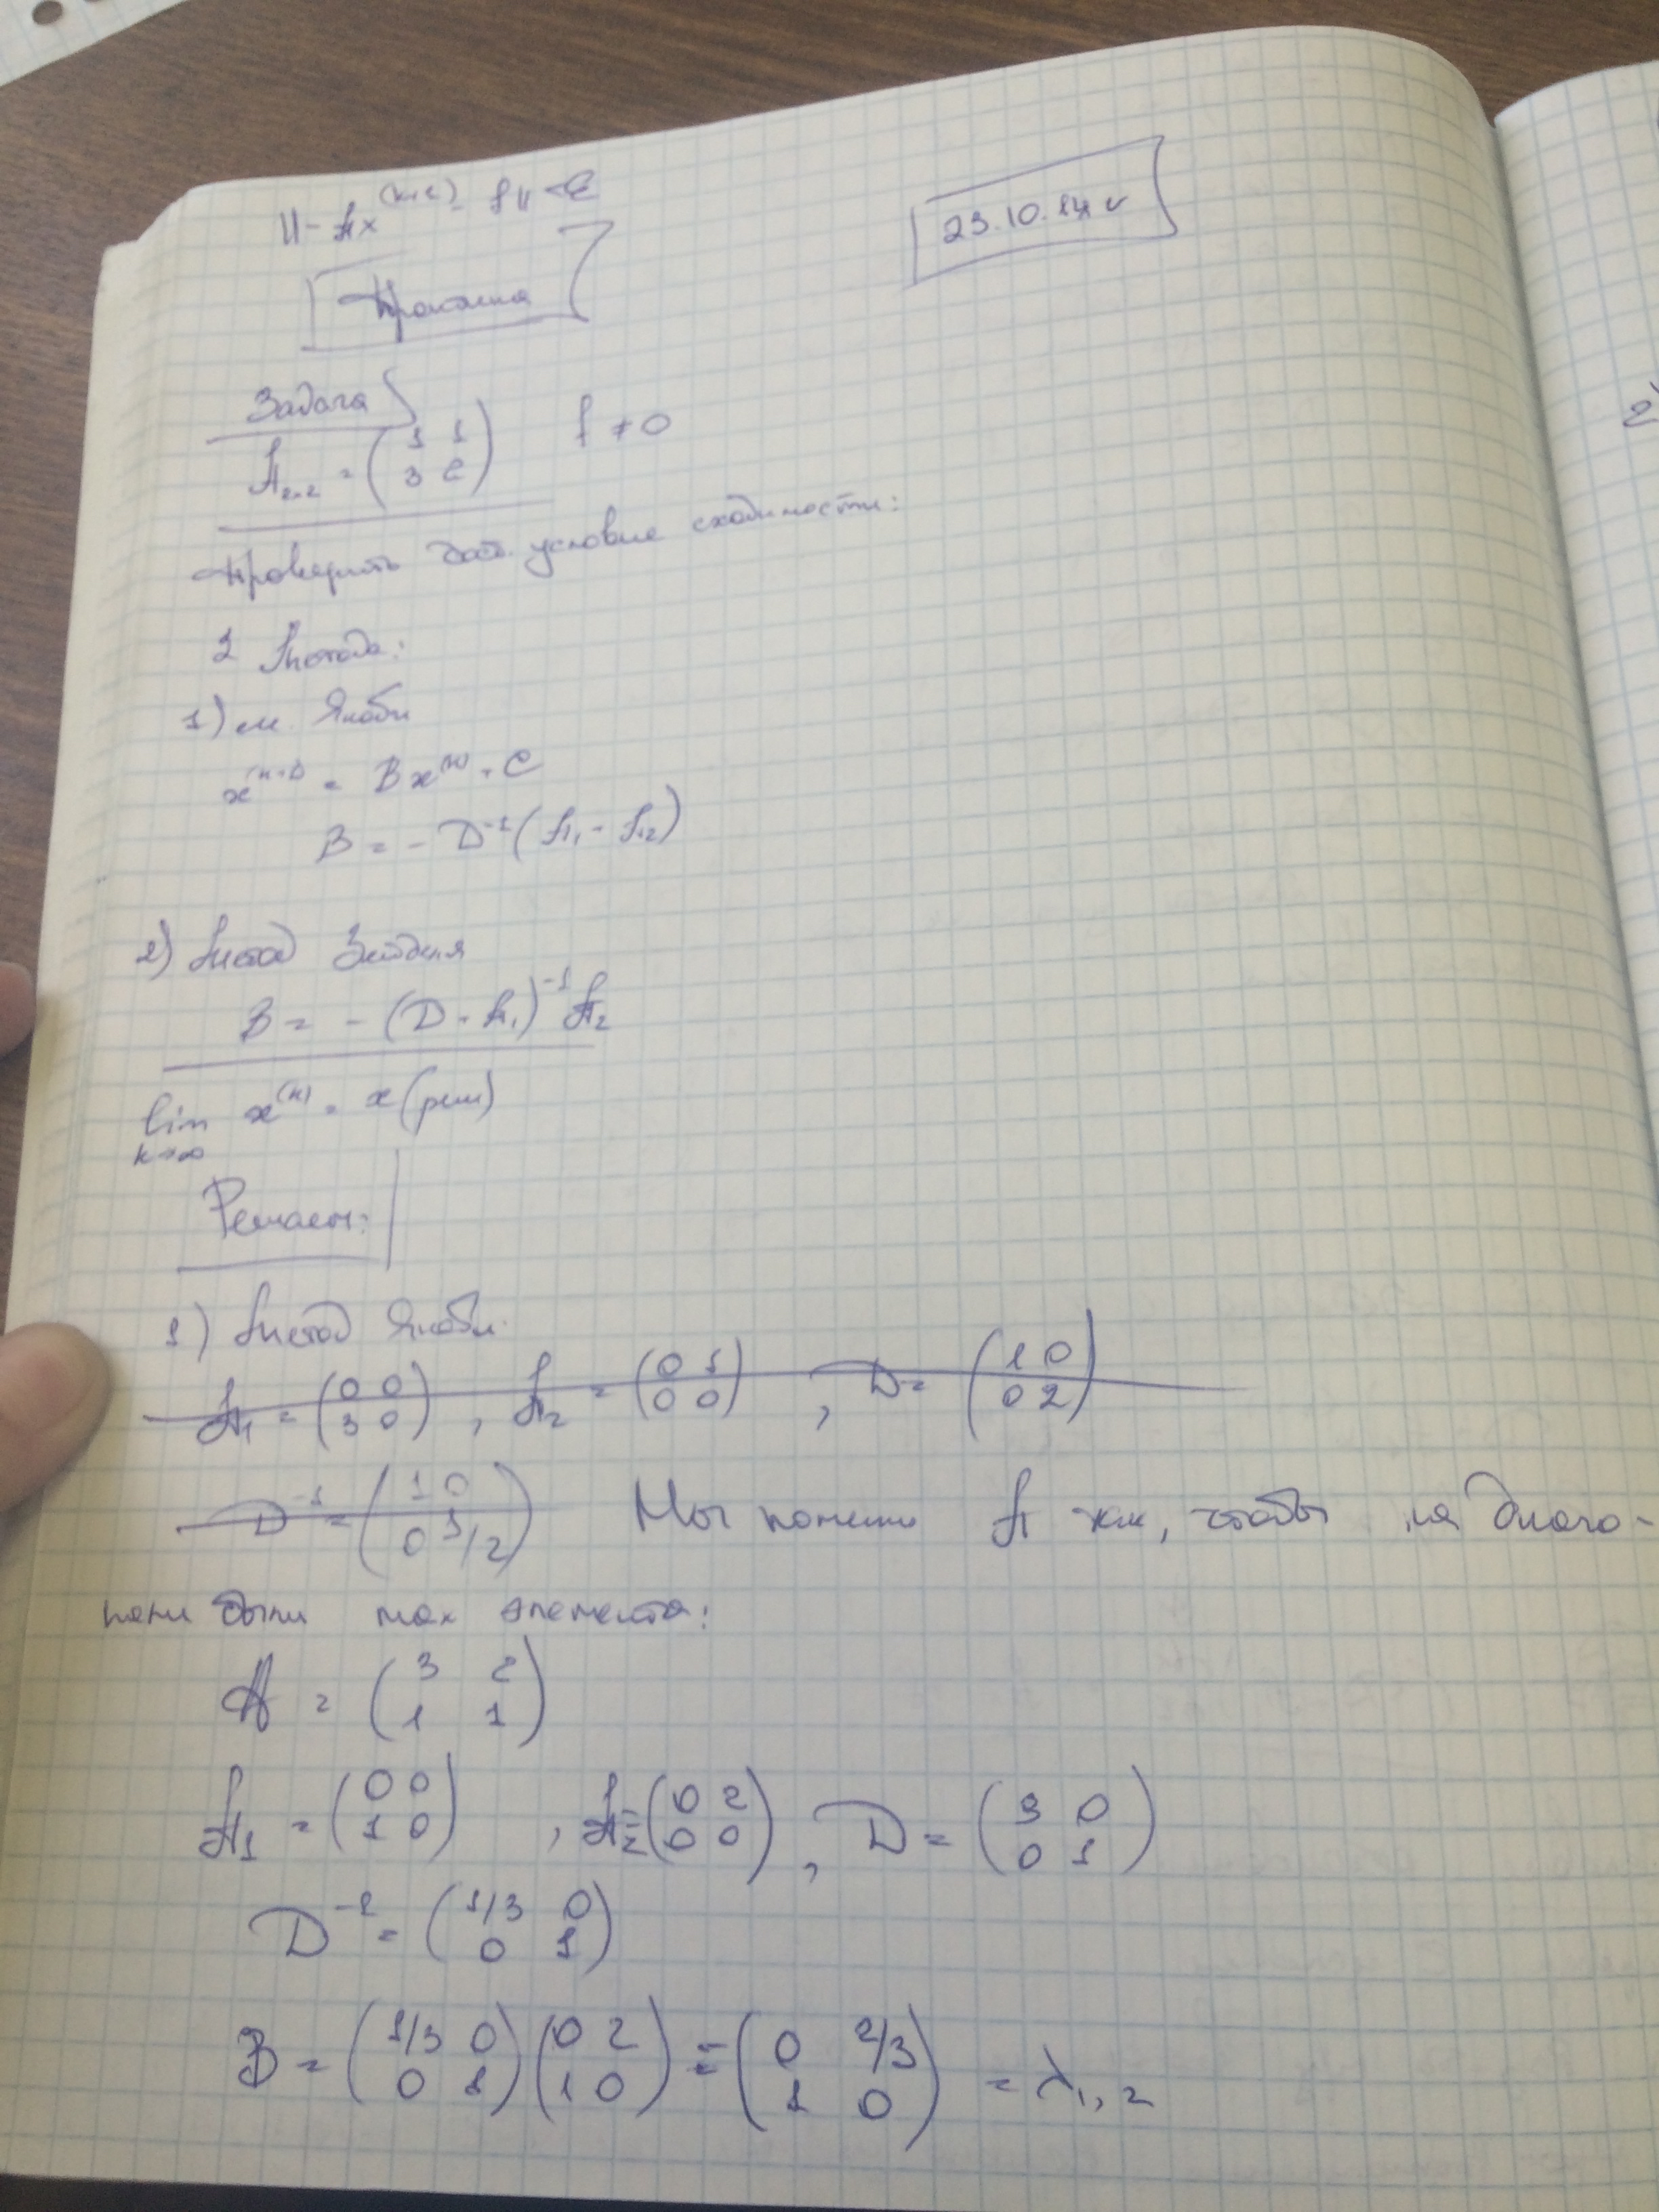 || - Ax^(k+1) - f || < ε
23.10.14 г
Практика
Задача
A₂ₓ₂ = (1 1; 3 2) f ≠ 0
Проверить дост. условие сходимости:
2 Метода:
1) м. Якоби
x^(k+1) = Bx^(k) + C
B = - D⁻¹(A₁ + A₂)
2) Метод Зейделя
B = - (D + A₁)⁻¹ A₂
lim x^(k) = x (реш)
k→∞
Решаем:
1) Метод Якоби
A₁ = (0 0; 3 0), A₂ = (0 1; 0 0), D = (1 0; 0 2)
D⁻¹ = (1 0; 0 1/2) Мы A так, чтобы на диаго-
нали были max элемента:
A = (3 2; 1 1)
A₁ = (0 0; 1 0), A₂ = (0 2; 0 0), D = (3 0; 0 1)
D⁻¹ = (1/3 0; 0 1)
B = (1/3 0; 0 1)(0 2; 1 0) = (0 2/3; 1 0) = λ₁,₂
2)